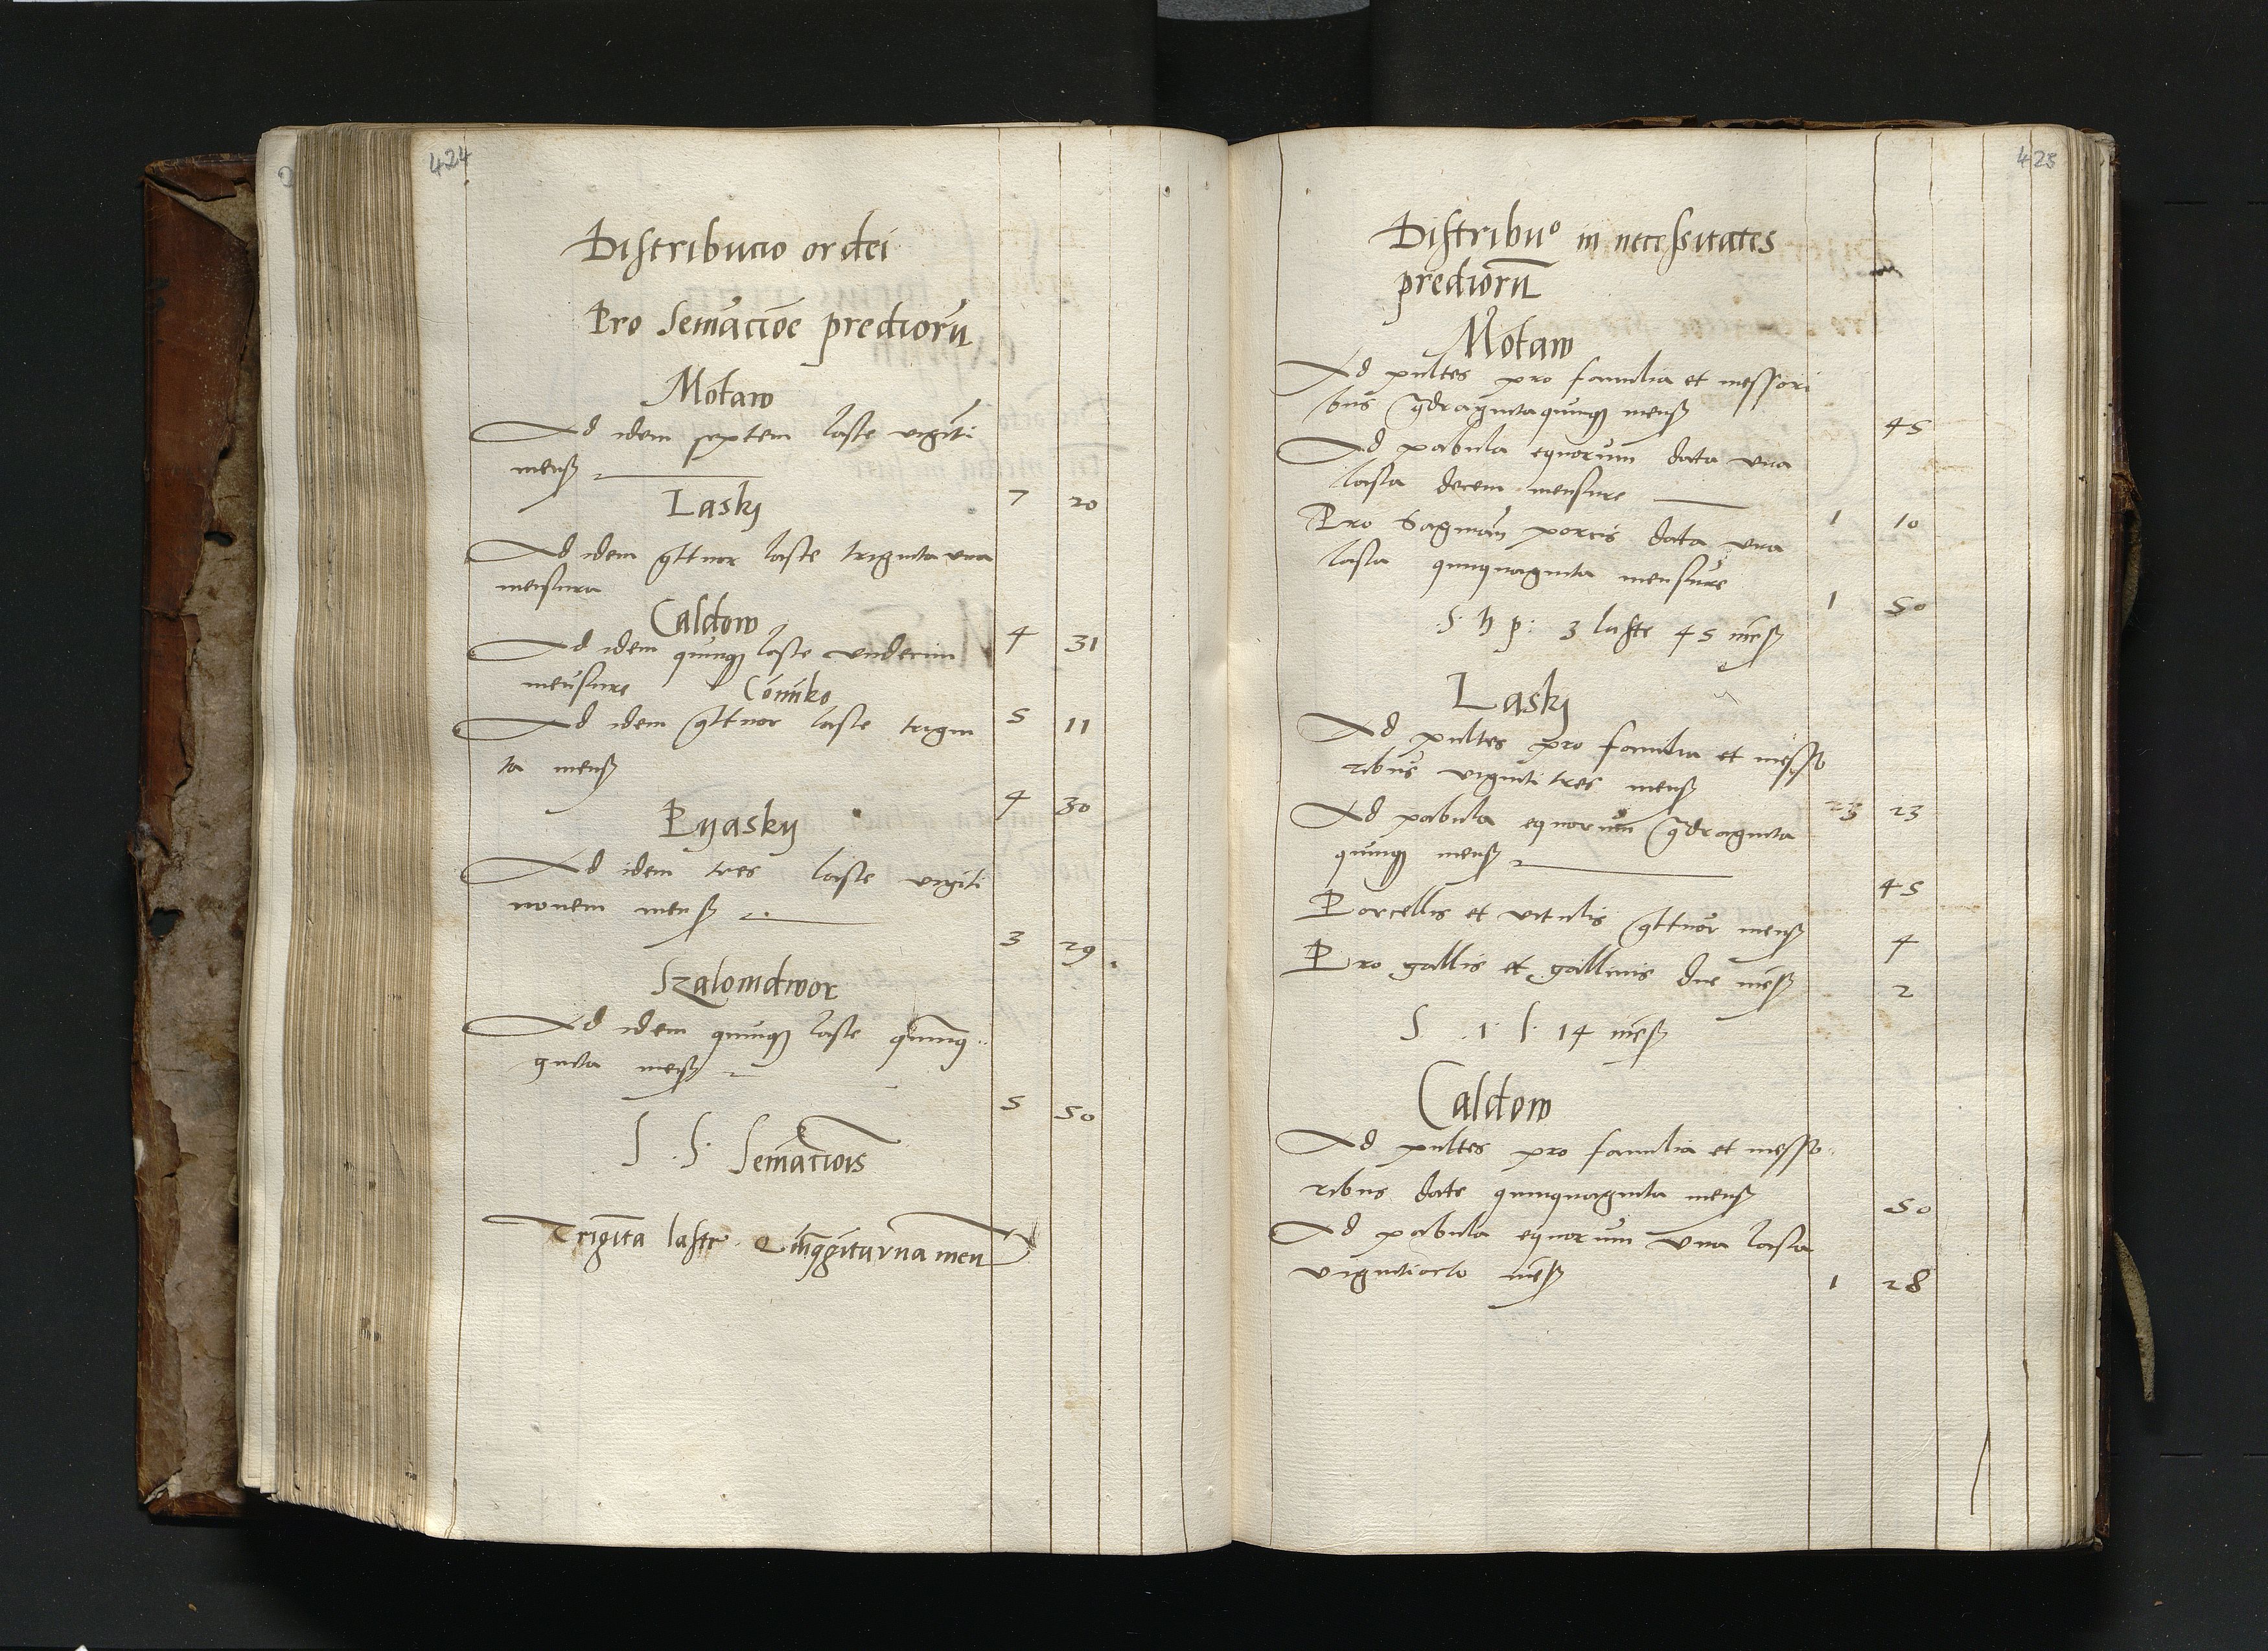 424
Distribucio ordei
Pro Seminacioe predioru
Motaw
Ad idem septem laste viginti
mens
7 20
Lasky
Ad idem qttuor laste triginta una
mensura
4 31
Caldow
Ad idem quinq laste undecim
mensure
5 11
Comike
Ad idem qttuor laste trigin
ta mens
4 30
Pyasky
Ad idem tres laste vigiti
novem mens
3 29
Szalomdwor
Ad idem quinq laste quinq
ginta mens
5 50
S. S. Seminaciois
Triginta laste Quinqgintauna men
423
Distribuo in necessitates
predioru
Motaw
Ad pultes pro familia et messori
bus qdragintaquinq mens
45
Ad pabula equorum data una
lasta decem mensure
1 10
Pro Saginan porcis data una
lasta quinquaginta mensure
1 50
S. h p: 3 laste 45 mens
Lasky
Ad pultes pro familia et messo
ribus viginti tres mens
23 23
Ad pabula equorum qdraginta
quinq mens
45
Porcellis et vitulis qttuor mens
4
Pro gallis et gallinis due mens
2
S .1. l. 14 mens
Caldow
Ad pultes pro familia et messo
ribus date quinquaginta mens
50
Ad pabula equorum una lasta
vigintiocto mens
1 28